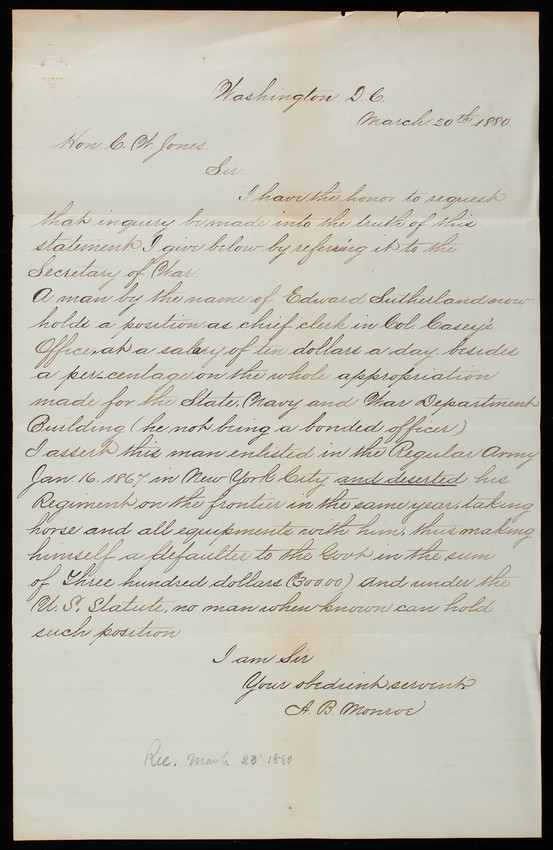 Washington D.C.
March 20th 1880.
Hon C. W. Jones
Sir
I have the honor to request
that inquiry be made into the truth of this
statement I give below by refering it to the
Secretary of War
A man by the name of Edward Sutherland now
holds a position as chief clerk in Col. Casey's
Office, at a salery of ten dollars a day, besides
a per-centage on the whole appropriation
made for the State, Navy and War Department
Building (he not being a bonded officer)
I assert this man enlisted in the Regular Army
Jan 16. 1867 in New York City and deserted his
Regiment on the frontier in the same year, taking
horse and all equipments with him, thus making
himself a defaulter to the Govt in the sum
of Three hundred dollars ($300.00) and under the
U. S. Statute, no man when known can hold
such position
I am Sir
Your obedient servent
A. B. Monroe
Rec. March 23d 1880